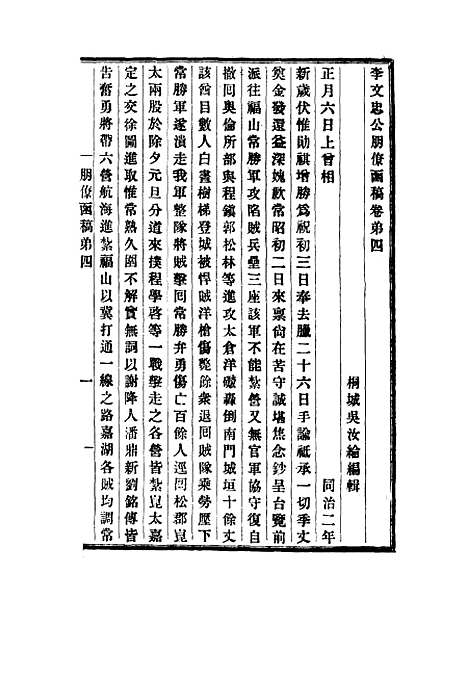 李文忠公朋僚函稿卷第四
桐城吳汝綸編輯
正月六日上曾相 同治二年
新歲伏惟勛祺增勝爲祝初三日奉去臘二十六日手諭祗承一切季丈
奠金發還益深媿歉常昭初二日來稟尙在苦守誠堪焦念鈔呈台覽前
派往福山常勝軍攻陷賊兵壘三座該軍不能紮營又無官軍協守復自
撤回奧倫所部與程鎭郭松林等進攻太倉洋礮轟倒南門城垣十餘丈
該酋目數人白晝樹梯登城被悍賊洋槍傷斃餘衆退回賊隊乘勢壓下
常勝軍遂潰走我軍整隊將賊擊回常勝弁勇傷亡百餘人逕回松郡崑
太兩股於除夕元旦分道來撲程學啓等一戰擊走之各營皆紮崑太嘉
定之交徐圖進取惟常熟久困不解實無詞以謝降人潘鼎新劉銘傳皆
告奮勇將帶六營航海進紮福山以冀打通一線之路嘉湖各賊均調常
朋僚函稿第四 一